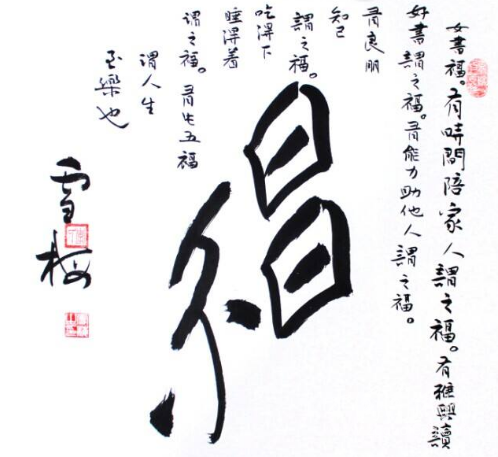 女書福。有時間陪家人謂之福。有雅興讀
好書謂之福。有能力助他人謂之福。
有良朋
知己
謂之福。
吃得下
睡得着
謂之福。有此五福
謂人生
至樂也
雪梅